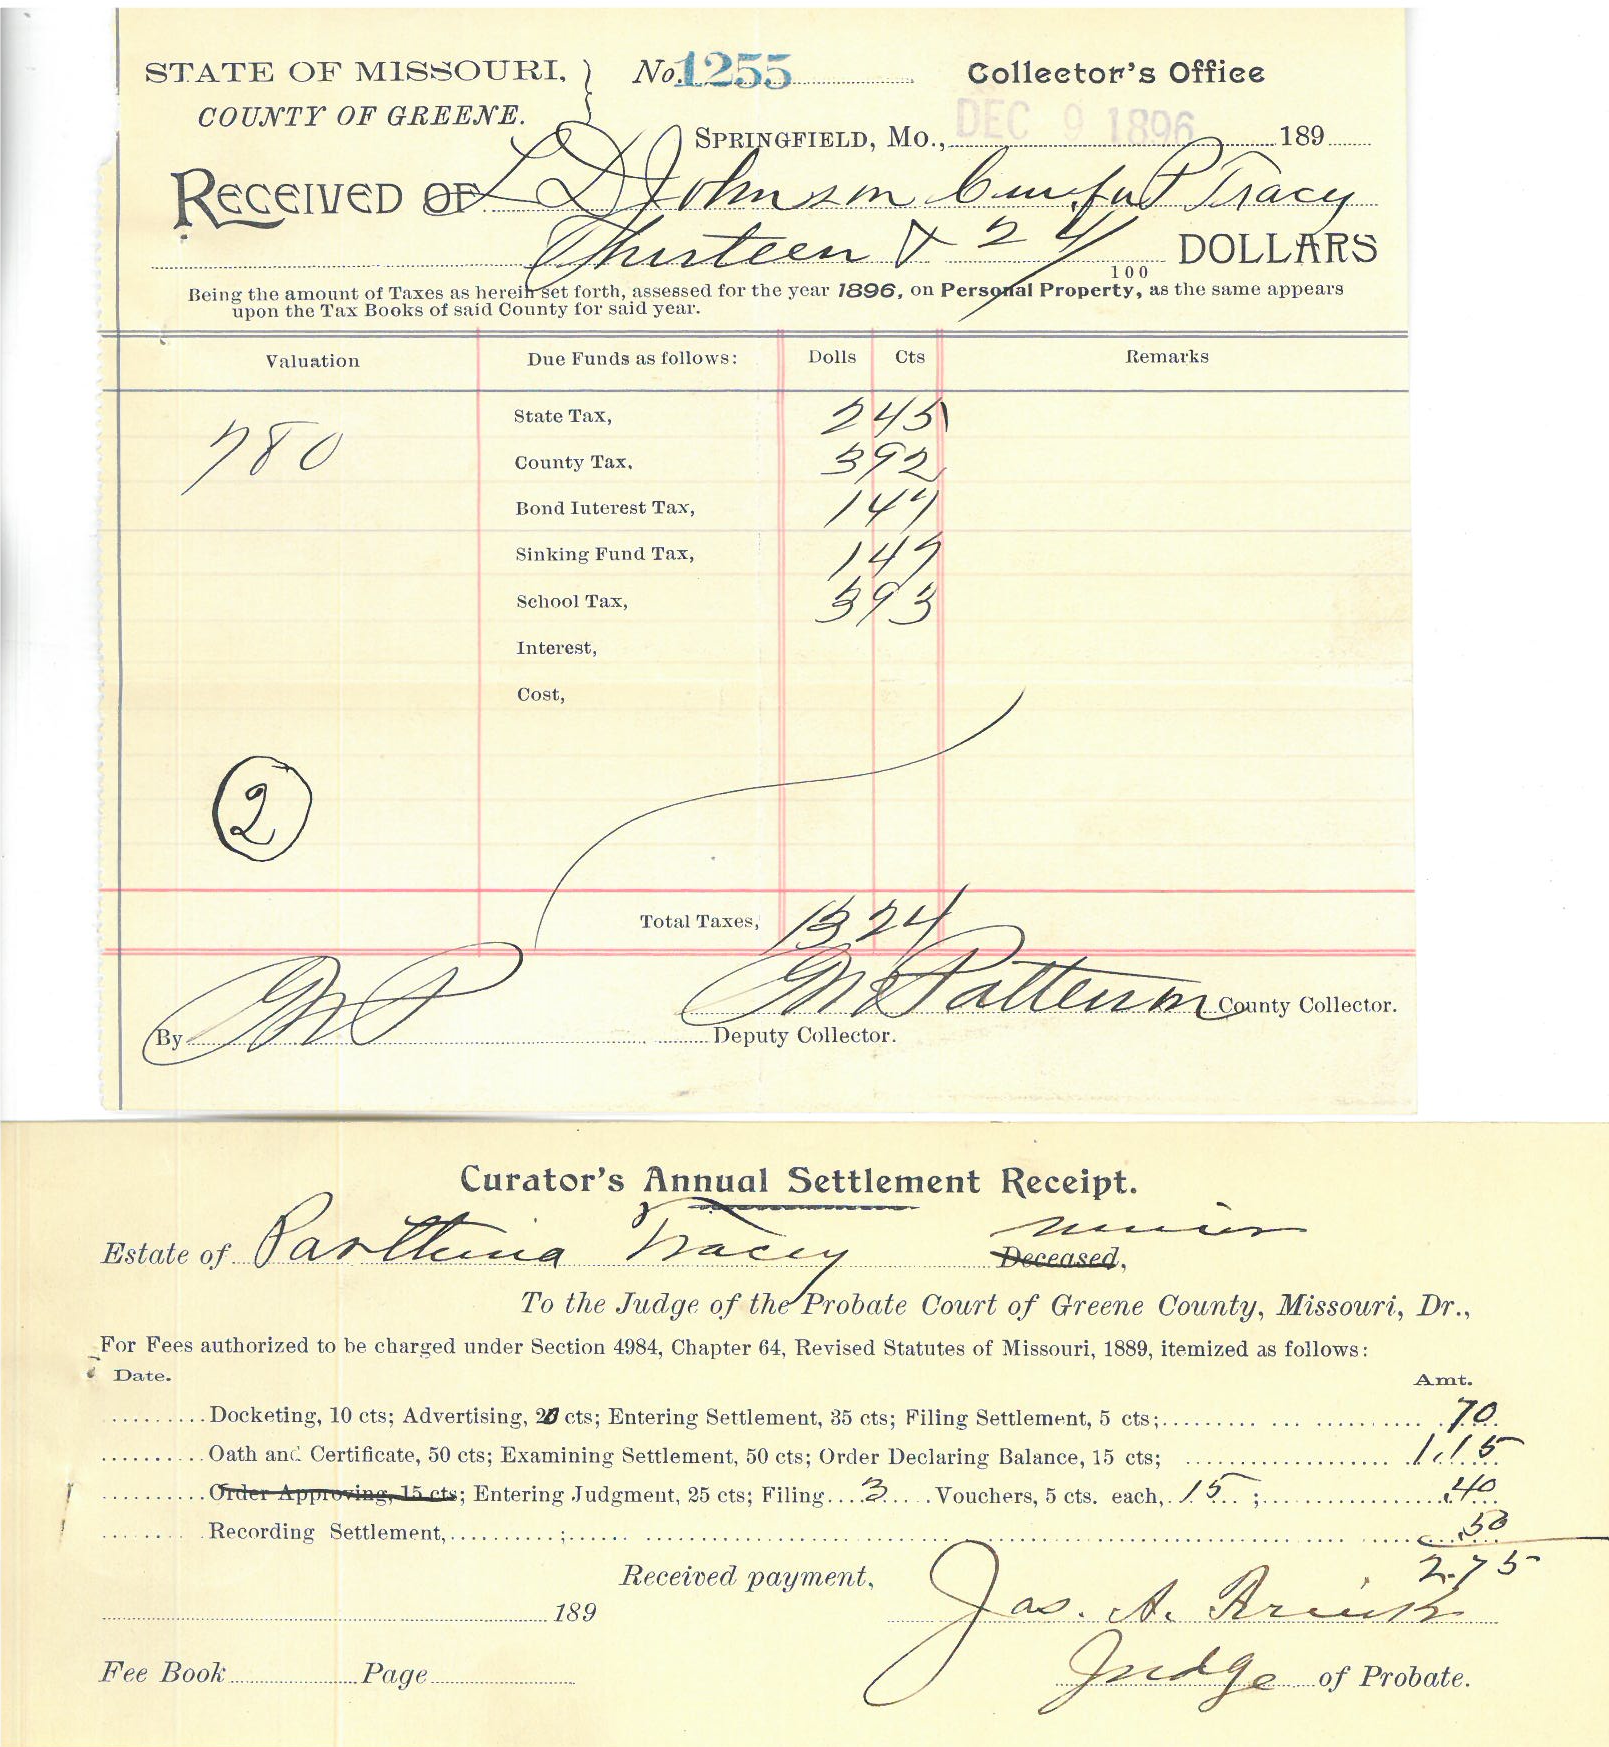 STATE OF MISSOURI, } No. 1255 Collector's Office
COUNTY OF GREENE.
SPRINGFIELD, Mo., DEC 9 1896 189
RECEIVED OF L D Johnson Cur. for P Tracy
Thirteen & 24/100 DOLLARS
Being the amount of Taxes as herein set forth, assessed for the year 1896, on Personal Property, as the same appears
upon the Tax Books of said County for said year.
Valuation Due Funds as follows: Dolls Cts Remarks
780 State Tax, 2 45
County Tax, 3 92
Bond Interest Tax, 1 47
Sinking Fund Tax, 1 47
School Tax, 3 93
Interest,
Cost,
2
Total Taxes, 13 24
G M Patterson County Collector.
By G M P Deputy Collector.
Curator's Annual Settlement Receipt.
Estate of Parthena Tracey minor Deceased,
To the Judge of the Probate Court of Greene County, Missouri, Dr.,
For Fees authorized to be charged under Section 4984, Chapter 64, Revised Statutes of Missouri, 1889, itemized as follows:
Date. Amt.
Docketing, 10 cts; Advertising, 20 cts; Entering Settlement, 35 cts; Filing Settlement, 5 cts; 70
Oath and Certificate, 50 cts; Examining Settlement, 50 cts; Order Declaring Balance, 15 cts; 1.15
Order Approving, 15 cts; Entering Judgment, 25 cts; Filing 3 Vouchers, 5 cts. each, 15 ; .40
Recording Settlement, ; .50
2.75
Received payment,
189 Jas. A.
Judge of Probate.
Fee Book Page